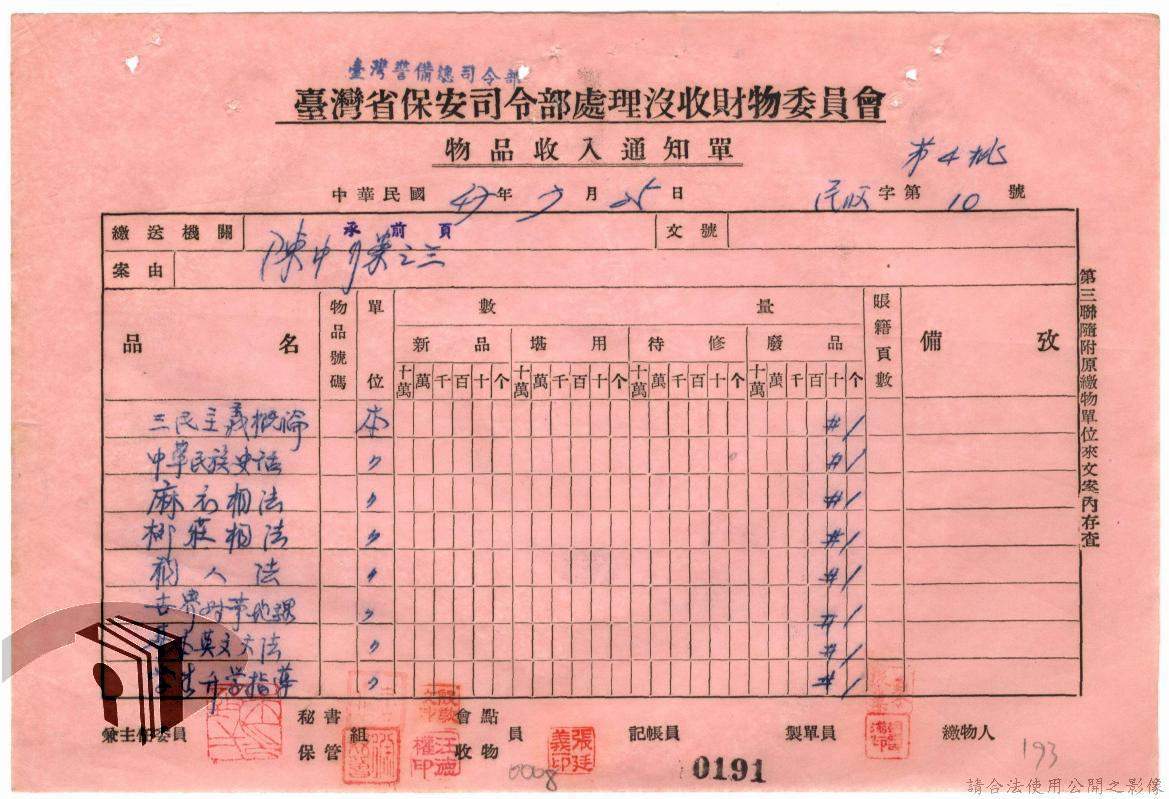 臺灣警備總司令部
臺灣省保安司令部處理沒收財物委員會
物品收入通知單
第4批
中華民國 47年 7月 25日 民收字第 10 號
繳送機關 承前頁 文號
案由 陳中 案之三
品名 物品號碼 單位 數量 賬籍頁數 備攷
新品 堪用 待修 廢品
十萬 萬 千 百 十 个 十萬 萬 千 百 十 个 十萬 萬 千 百 十 个 十萬 萬 千 百 十 个
三民主義概論 本 # 1
中華民族史話 〃 # 1
麻衣相法 〃 # 1
柳莊相法 〃 # 1
相人法 〃 # 1
世界 〃 # 1
英文文法 〃 # 1
學生升學指導 〃 # 1
第三聯隨附原繳物單位來文案內存查
兼主任委員 秘書 保管組 會點 收物 員 記帳員 製單員 繳物人
張廷義印
汪德權印
0008
0191
193
請合法使用公開之影像